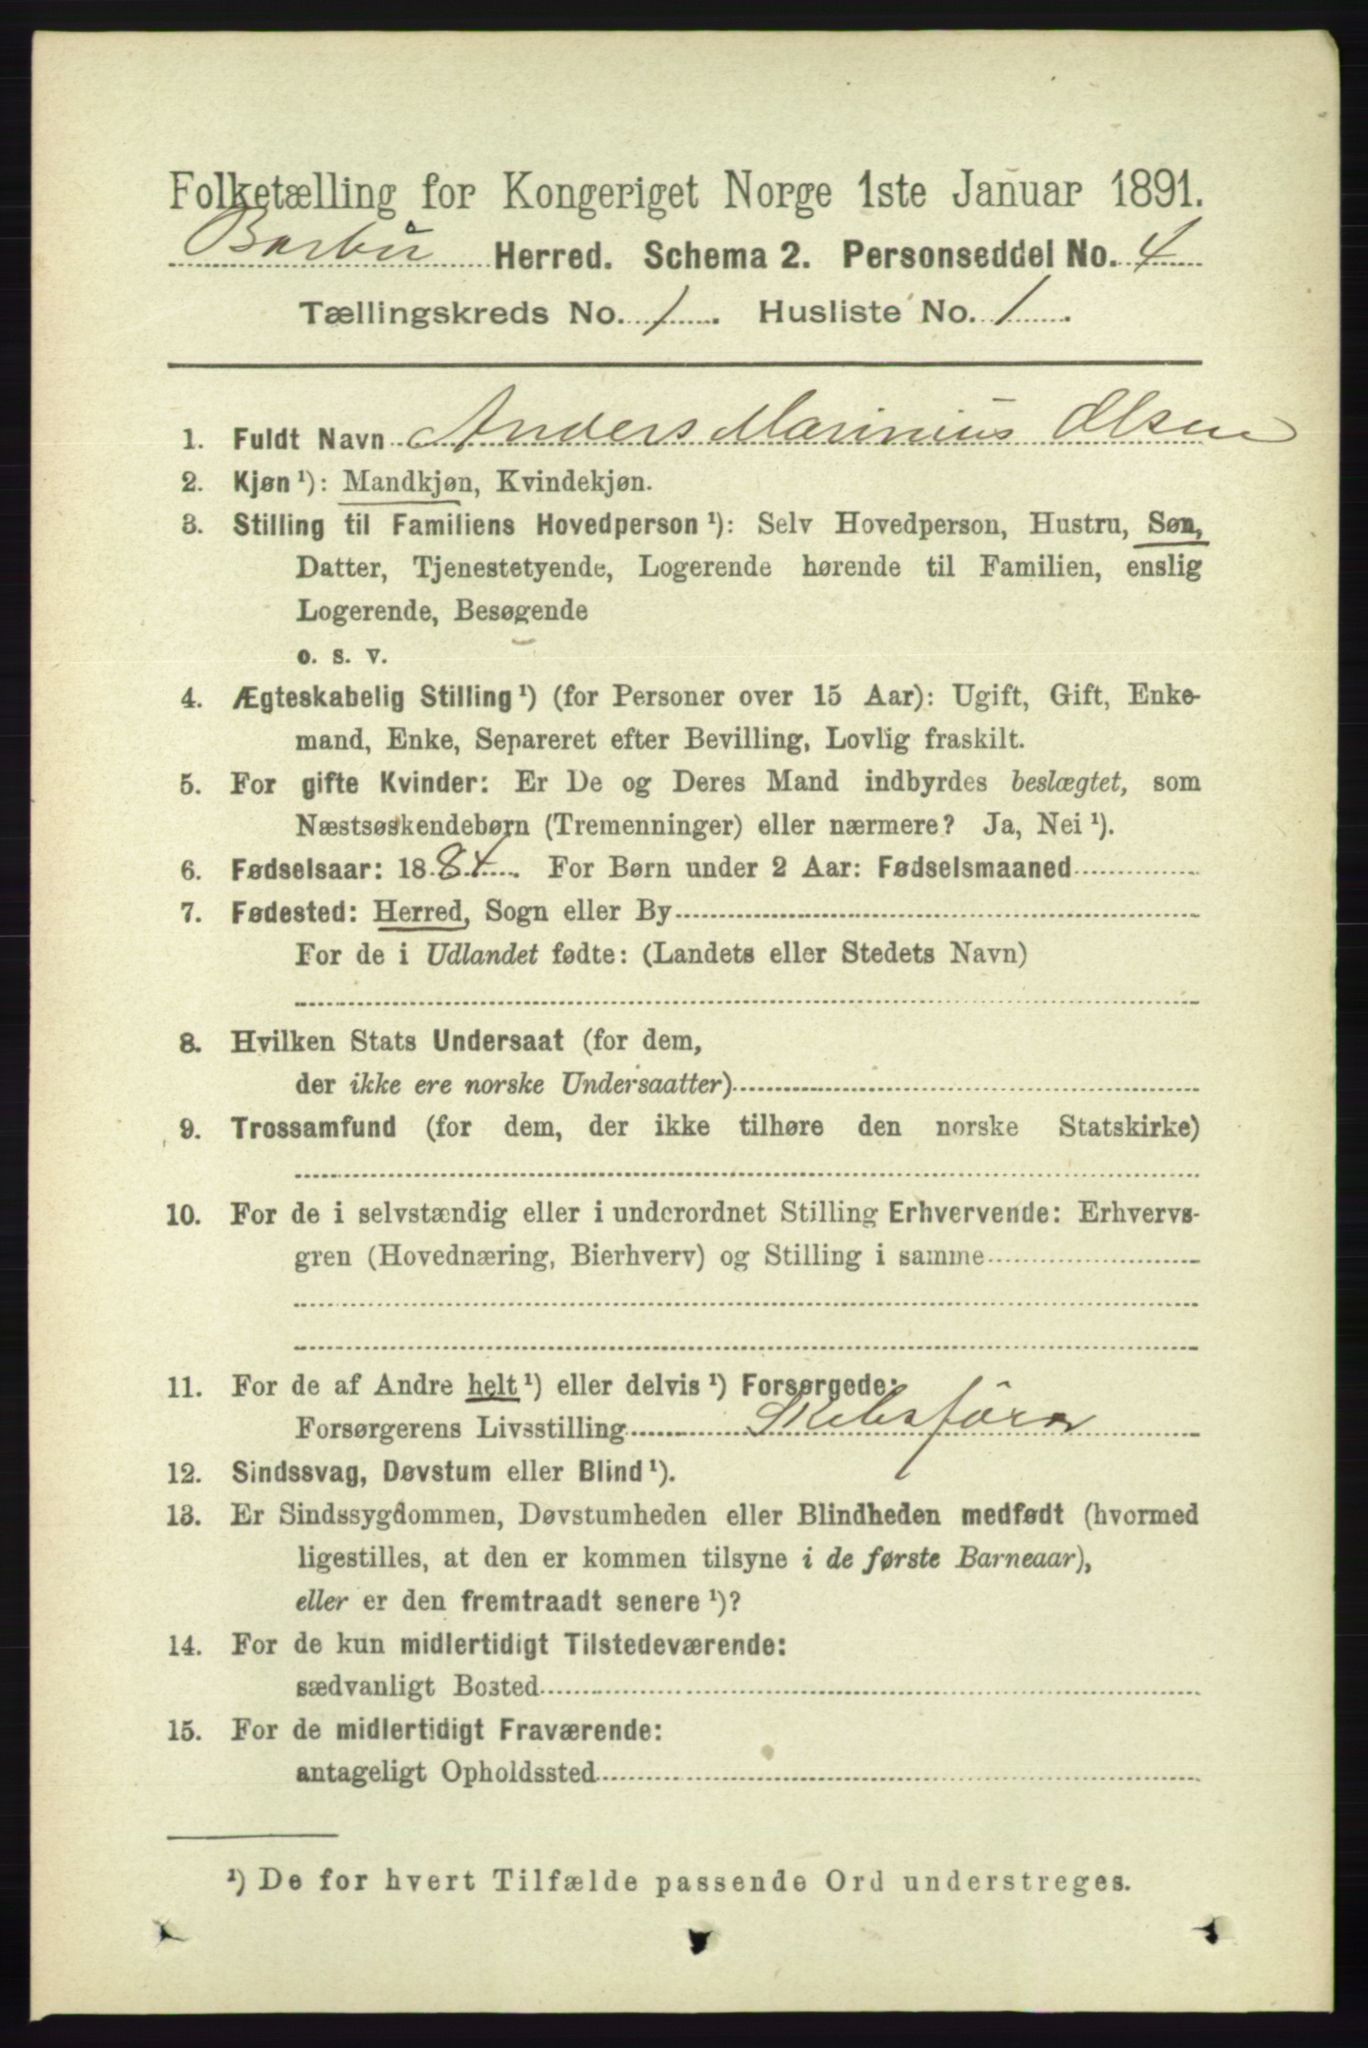 Folketælling for Kongeriget Norge 1ste Januar 1891.
Barbu Herred. Schema 2. Personseddel No. 4
Tællingskreds No. 1. Husliste No. 1.
1. Fuldt Navn Anders Marinius Olsen
2. Kjøn ¹): Mandkjøn, Kvindekjøn.
3. Stilling til Familiens Hovedperson ¹): Selv Hovedperson, Hustru, Søn,
Datter, Tjenestetyende, Logerende hørende til Familien, enslig
Logerende, Besøgende
o. s. v.
4. Ægteskabelig Stilling ¹) (for Personer over 15 Aar): Ugift, Gift, Enke-
mand, Enke, Separeret efter Bevilling, Lovlig fraskilt.
5. For gifte Kvinder: Er De og Deres Mand indbyrdes beslægtet, som
Næstsøskendebørn (Tremenninger) eller nærmere? Ja, Nei ¹).
6. Fødselsaar: 1884. For Børn under 2 Aar: Fødselsmaaned
7. Fødested: Herred, Sogn eller By
For de i Udlandet fødte: (Landets eller Stedets Navn)
8. Hvilken Stats Undersaat (for dem,
der ikke ere norske Undersaatter)
9. Trossamfund (for dem, der ikke tilhøre den norske Statskirke)
10. For de i selvstændig eller i underordnet Stilling Erhvervende: Erhvervs-
gren (Hovednæring, Bierhverv) og Stilling i samme
11. For de af Andre helt ¹) eller delvis ¹) Forsørgede:
Forsørgerens Livsstilling Skibsförer
12. Sindssvag, Døvstum eller Blind ¹).
13. Er Sindssygdommen, Døvstumheden eller Blindheden medfødt (hvormed
ligestilles, at den er kommen tilsyne i de første Barneaar),
eller er den fremtraadt senere ¹)?
14. For de kun midlertidigt Tilstedeværende:
sædvanligt Bosted
15. For de midlertidigt Fraværende:
antageligt Opholdssted
¹) De for hvert Tilfælde passende Ord understreges.